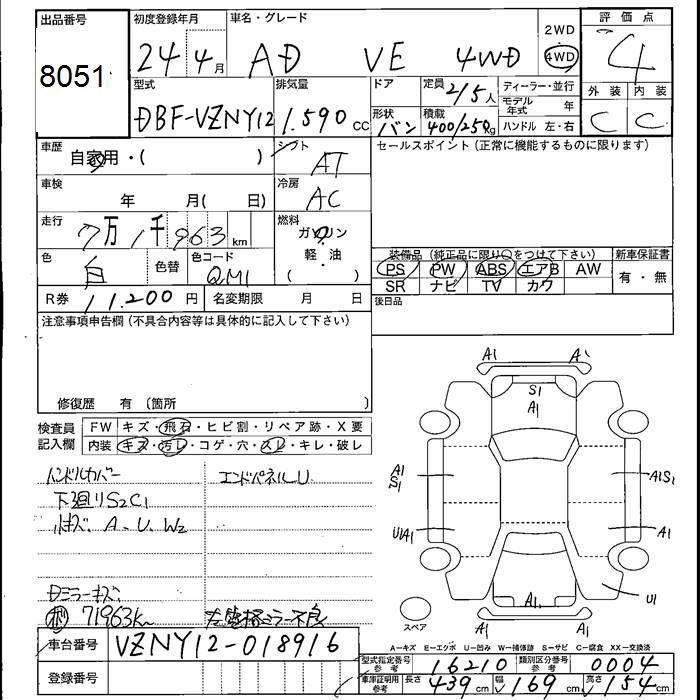 出品番号 初度登録年月 車名・グレード 2WD 評価点
8051 24年4月 AD VE 4WD 4WD 4
型式 排気量 ドア 定員 2/5人 ディーラー・並行 外装 内装
DBF-VZNY12 1.590cc 形状 バン 積載 400/250kg モデル年式 年 C C
ハンドル 左・右
車歴 自家用・( ) シフト AT セールスポイント(正常に機能するものに限ります)
車検 年 月( 日) 冷房 AC
走行 7万1千963km 燃料 ガソリン
色 白 色替 色コード QM1 軽・油
( )
装備品(純正品に限り○をつけて下さい) 新車保証書
PS PW ABS エアB AW 有・無
SR ナビ TV カワ
R券 11.200円 名変期限 月 日 後日品
注意事項申告欄(不具合内容等は具体的に記入して下さい)
修復歴 有(箇所 )
検査員記入欄 FW キズ・飛石・ヒビ割・リペア跡・X要
内装 キズ・汚レ・コゲ・穴・スレ・キレ・破レ
ハンドルカバー エンドパネルU
下廻りS2C1
小キズ A.U.W2
Dミラーキズ
71963km
A1 A1
S1
A1
A1
S1
A1S1
U1A1
A1
U1
A1
A1 A1
スペア
A-キズ E-エクボ U-凹み W-補修跡 S-サビ C-腐食 XX-交換済
車台番号 VZNY12-018916
型式指定番号 参考 16210 類別区分番号 参考 0004
登録番号
車庫証明用 参考 長さ 439cm 幅 169cm 高さ 154cm